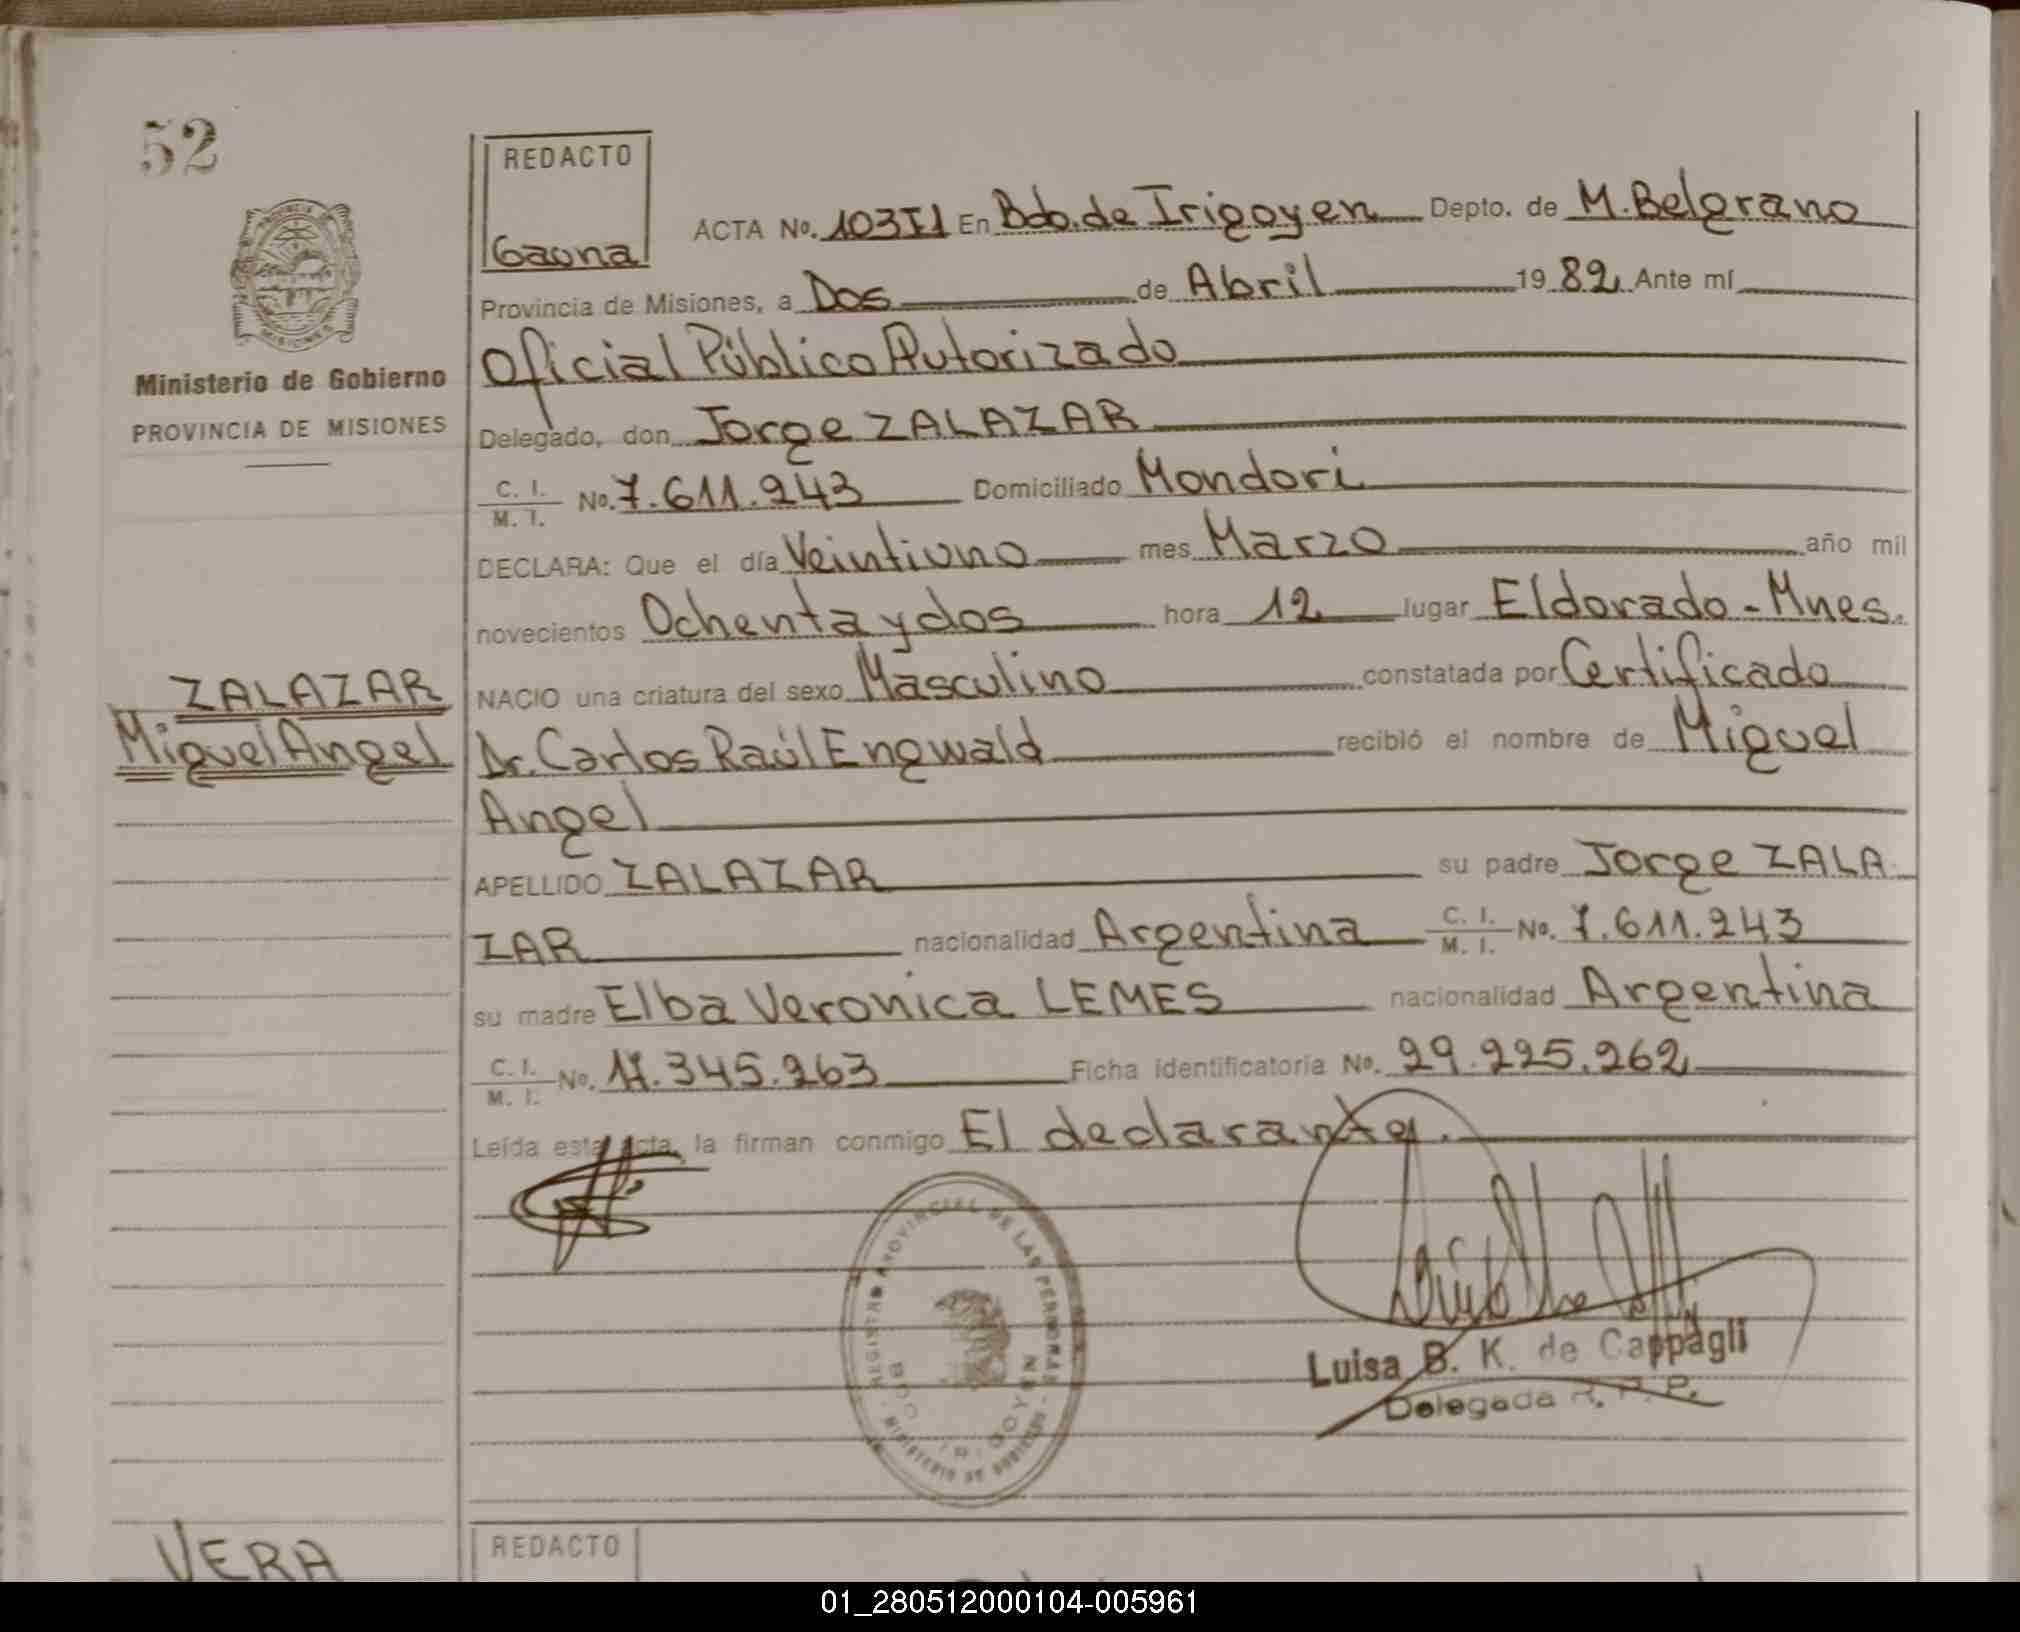 52
REDACTO
Gaona
ACTA No. 103T1 En Bdo. de Irigoyen Depto. de M. Belgrano
Provincia de Misiones, a Dos de Abril 1982 Ante mí
Oficial Público Autorizado
Delegado, don Jorge ZALAZAR
C. I. / M. I. No. 7.611.243 Domiciliado Mondori
DECLARA: Que el día Veintiuno mes Marzo año mil
novecientos Ochenta y dos hora 12 lugar Eldorado - Mnes.
NACIO una criatura del sexo Masculino constatada por Certificado
Dr. Carlos Raúl Engwald recibió el nombre de Miguel
Angel
APELLIDO ZALAZAR su padre Jorge ZALA
ZAR nacionalidad Argentina C. I. / M. I. No. 7.611.243
su madre Elba Veronica LEMES nacionalidad Argentina
C. I. / M. I. No. 17.345.263 Ficha identificatoria No. 29.225.262
Leída esta acta, la firman conmigo El declarante.
PROVINCIA DE MISIONES
Ministerio de Gobierno
PROVINCIA DE MISIONES
ZALAZAR
Miguel Angel
REGISTRO PROVINCIAL DE LAS PERSONAS
BDO. IRIGOYEN
MINISTERIO DE GOBIERNO
Luisa B. K. de Cappagli
Delegada R. P. P.
VERA
REDACTO
01_280512000104-005961